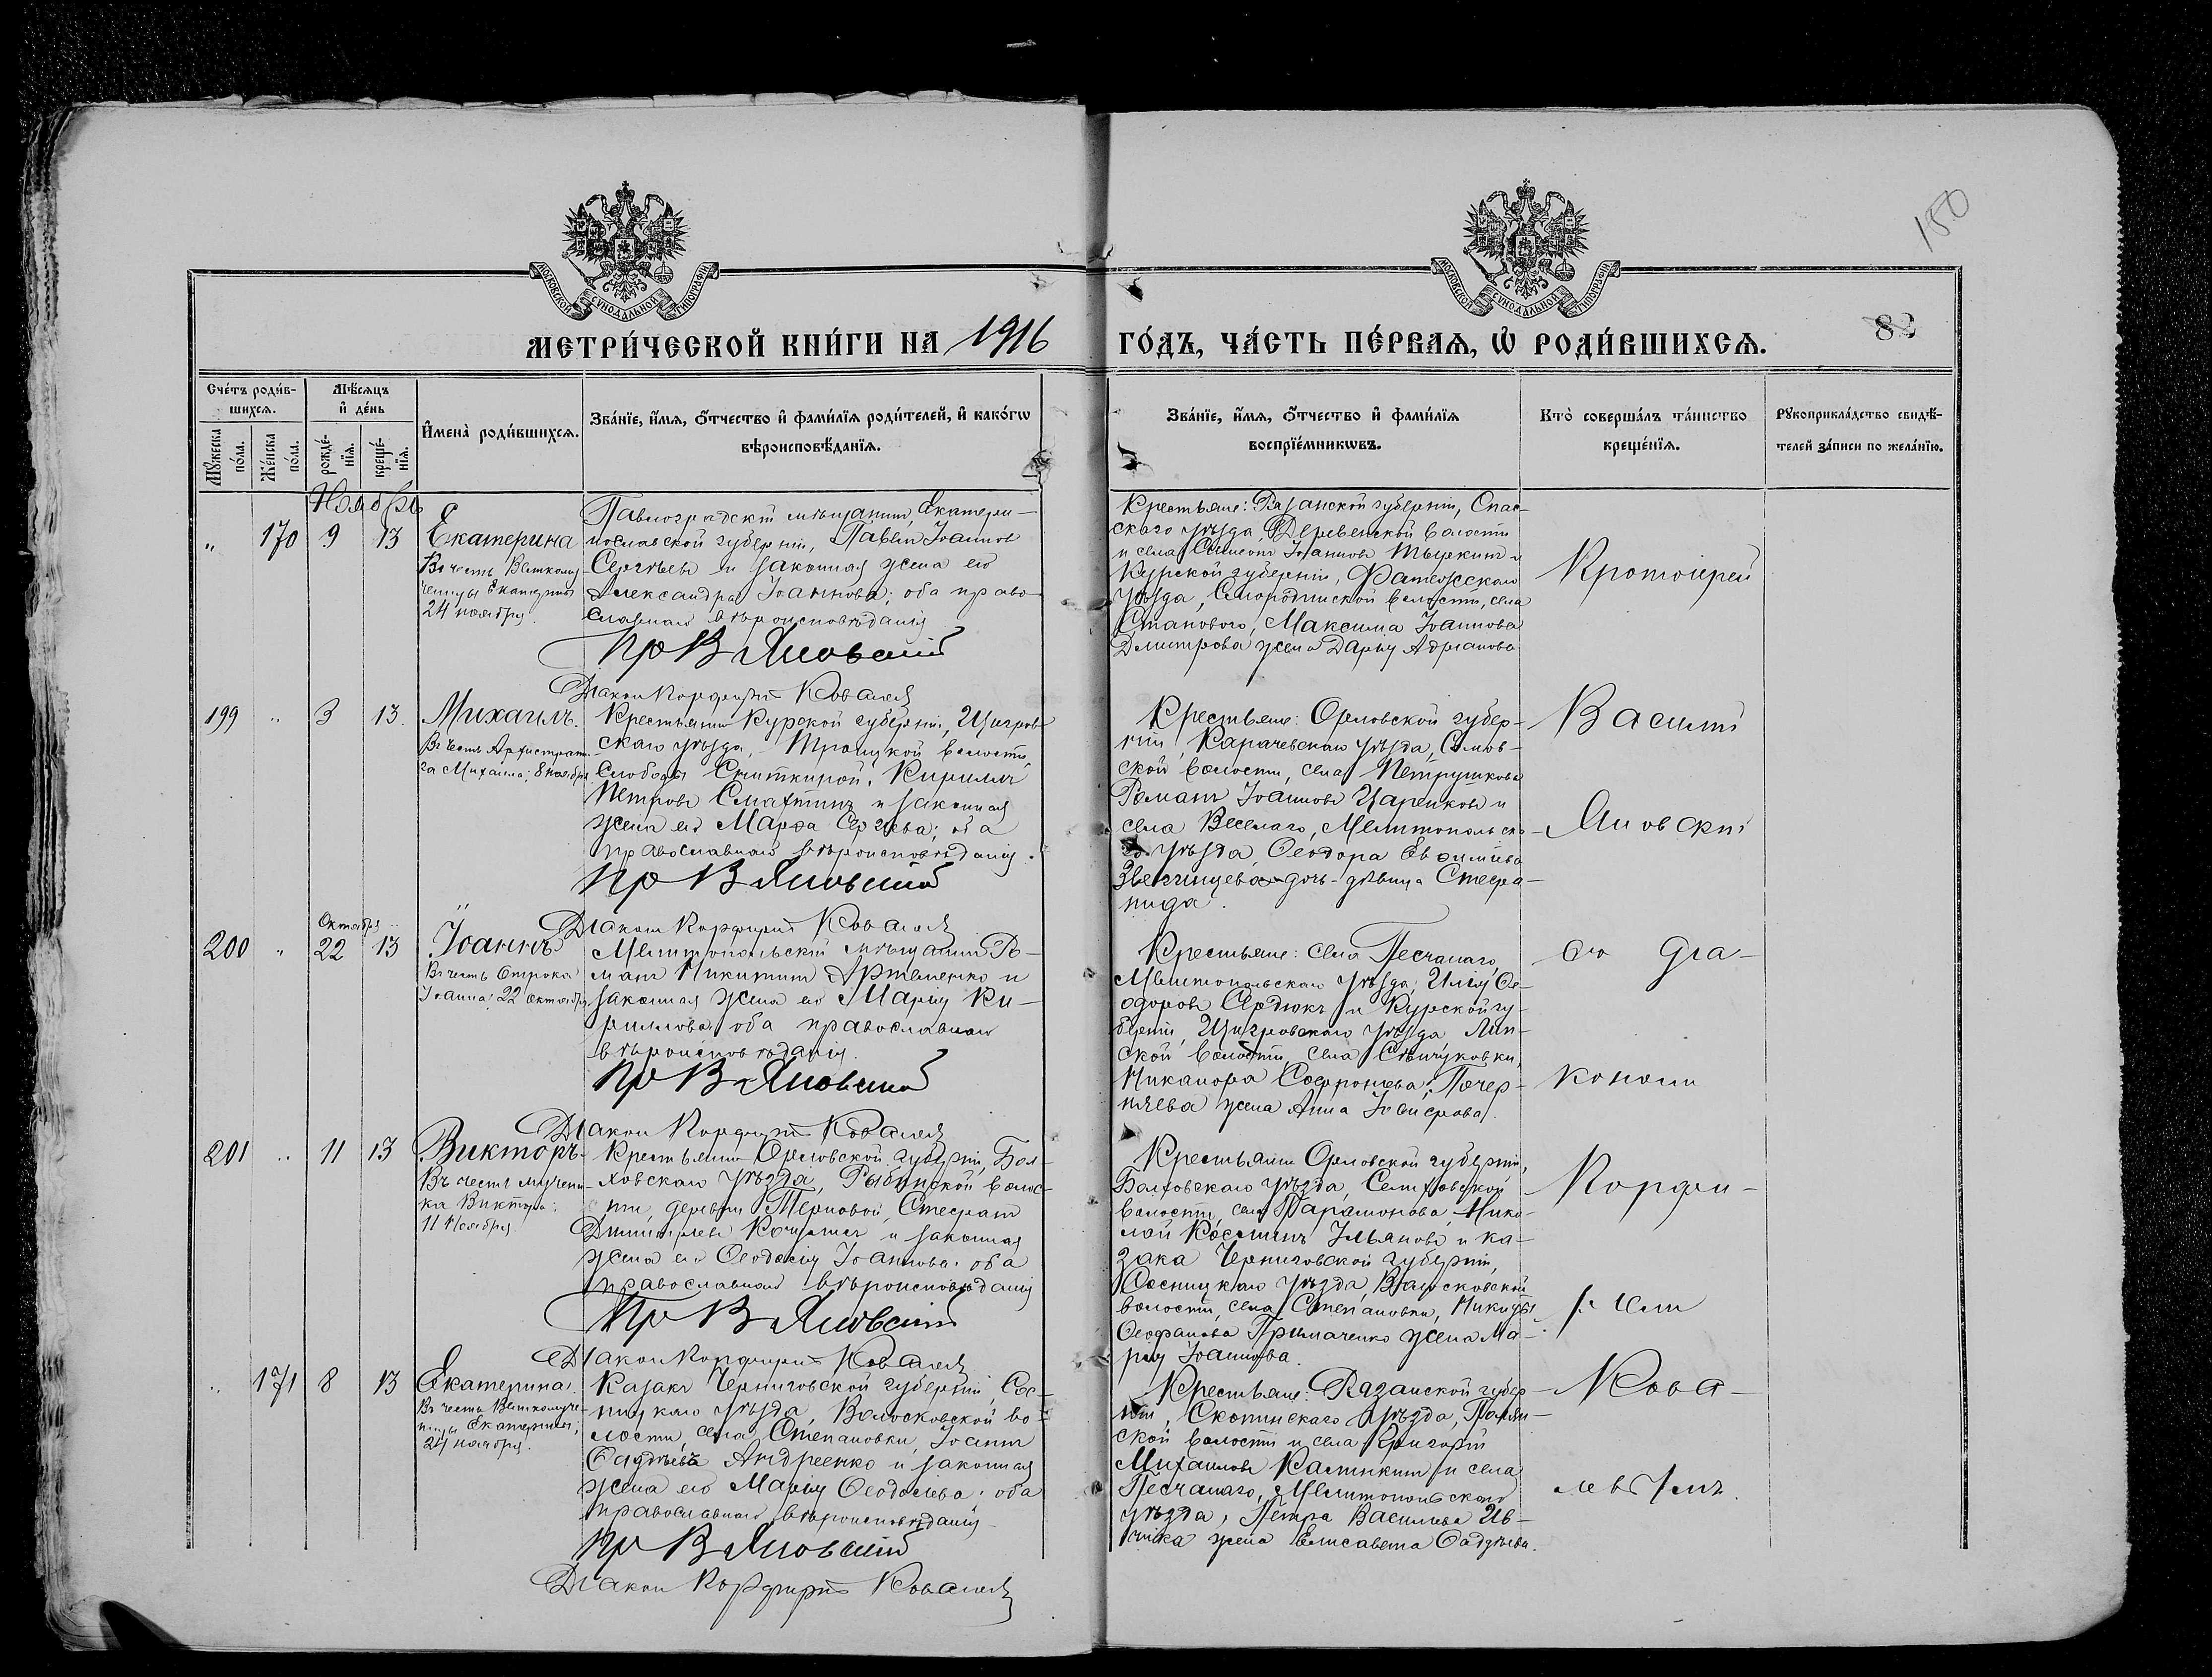 180
МОСКОВСКОЙ СѴНОДАЛЬНОЙ ТИПОГРАФІИ
МОСКОВСКОЙ СѴНОДАЛЬНОЙ ТИПОГРАФІИ
МЕТРИ́ЧЕСКОЙ КНИ́ГИ НА 1916 ГО́ДЪ, ЧА́СТЬ ПЕ́РВАѦ, Ѡ҆ РОДИ́ВШИХСѦ.
82
Сче́тъ роди́в-
шихсѧ.
Мꙋ́жеска по́ла.
Же́нска по́ла.
Мѣ́сѧцъ
и҆ де́нь
рожде́-
нїѧ.
креще́-
нїѧ.
И҆мена̀ роди́вшихсѧ.
Зва́нїе, и҆́мѧ, ѻ҆́тчество и҆ фами́лїѧ роди́телей, и҆ како́гѡ
вѣроисповѣ́данїѧ.
Зва́нїе, и҆́мѧ, ѻ҆́тчество и҆ фами́лїѧ
воспрїе́мникѡвъ.
Кто̀ соверша́лъ та́инство
креще́нїѧ.
Рꙋкоприкла́дство свидѣ́-
телей за́писи по жела́нїю.
Ноябрь
" 170 9 13 Екатерина
Въ честь Великому-
ченицы Екатерины
24 ноября.
Павлоградскій мѣщанинъ, Екатери-
нославской губерніи, Павелъ Іоанновъ
Сергѣевъ и законная жена его
Александра Іоаннова; оба право-
славнаго вѣроисповѣданія
Пр В Яновскій
Діаконъ Корфирій Ковалевъ
Крестьяне: Рязанской губерніи, Спас-
скаго уѣзда, Деревенской волости
и села Іоанновъ и
Курской губерніи, Фатежскаго
уѣзда, Смородинской волости, села
Становаго, Максима Іоаннова
Дмитрова жена Дарія Адріанова
Протоіерей
199 " 3 13. Михаилъ.
Въ честь Архистрати-
га Михаила; 8 ноября
Крестьянинъ Курской губерніи, Щигров-
скаго уѣзда, Троицкой волости,
Слободы Кириллъ
Петровъ и законная
жена его Марѳа Сергіева; оба
православнаго вѣроисповѣданія.
Пр В Яновскій
Діаконъ Корфирій Ковалевъ
Крестьяне: Орловской губер-
ніи, Карачевскаго уѣзда,
ской волости, села Петрушкова
Романъ Іоанновъ Царенковъ и
села Веселаго, Мелитопольска-
го уѣзда, Ѳеодора Евѳиміева
Звегинцева дочь-дѣвица Стефа-
нида.
Василій
Яновскій
Октября
200 " 22 13 Іоаннъ
Въ честь Отрока
Іоанна; 22 октября
Мелитопольскій мѣщанинъ Ро-
манъ Никитинъ Артеменко и
законная жена его Марія Ки-
риллова; оба православнаго
вѣроисповѣданія.
Пр В Яновскій
Діаконъ Корфирій Ковалевъ
Крестьяне: села Песчанаго,
Мелитопольскаго уѣзда, Илія Ѳе-
одоровъ Сердюкъ и Курской гу-
берніи, Щигровскаго уѣзда, Лип-
ской волости, села
Никанора Софроніева
жена Анна
со діа-
кономъ
201 " 11 13 Викторъ
Въ честь мучени-
ка Виктора;
11 Ноября.
Крестьянинъ Орловской губерніи, Бол-
ховскаго уѣзда, волос-
ти, деревни Терновой, Стефанъ
Димитріевъ и законная
жена его Ѳеодосія Іоаннова; оба
православнаго вѣроисповѣданія
Пр В Яновскій
Діаконъ Корфирій Ковалевъ
Крестьянинъ Орловской губерніи,
Болховскаго уѣзда,
волости, села Парамонова, Нико-
лай Косминъ Ульяновъ и ка-
зака Черниговской губерніи,
Сосницкаго уѣзда, Волосковской
волости, села Степановки, Никиты
Ѳеофанова Примаченко жена Ма-
рія Іоаннова.
Корфи-
ріемъ
" 171 8 13 Екатерина.
Въ честь Великомуче-
ницы Екатерины;
24 ноября.
Казакъ Черниговской губерніи, Сос-
ницкаго уѣзда, Волосковской во-
лости, села Степановки, Іоаннъ
Ѳаддеевъ Андреенко и законная
жена его Марія Ѳеодосіева; оба
православнаго вѣроисповѣданія
Пр В Яновскій
Діаконъ Корфирій Ковалевъ
Крестьяне: Рязанской губер-
ніи, Скопинскаго уѣзда,
ской волости и села Григорій
Михаиловъ Калинкинъ и села
Песчанаго, Мелитопольскаго
уѣзда, Петра Васильева Ив-
чика жена Елисавета Ѳаддеева.
Кова-
левымъ.